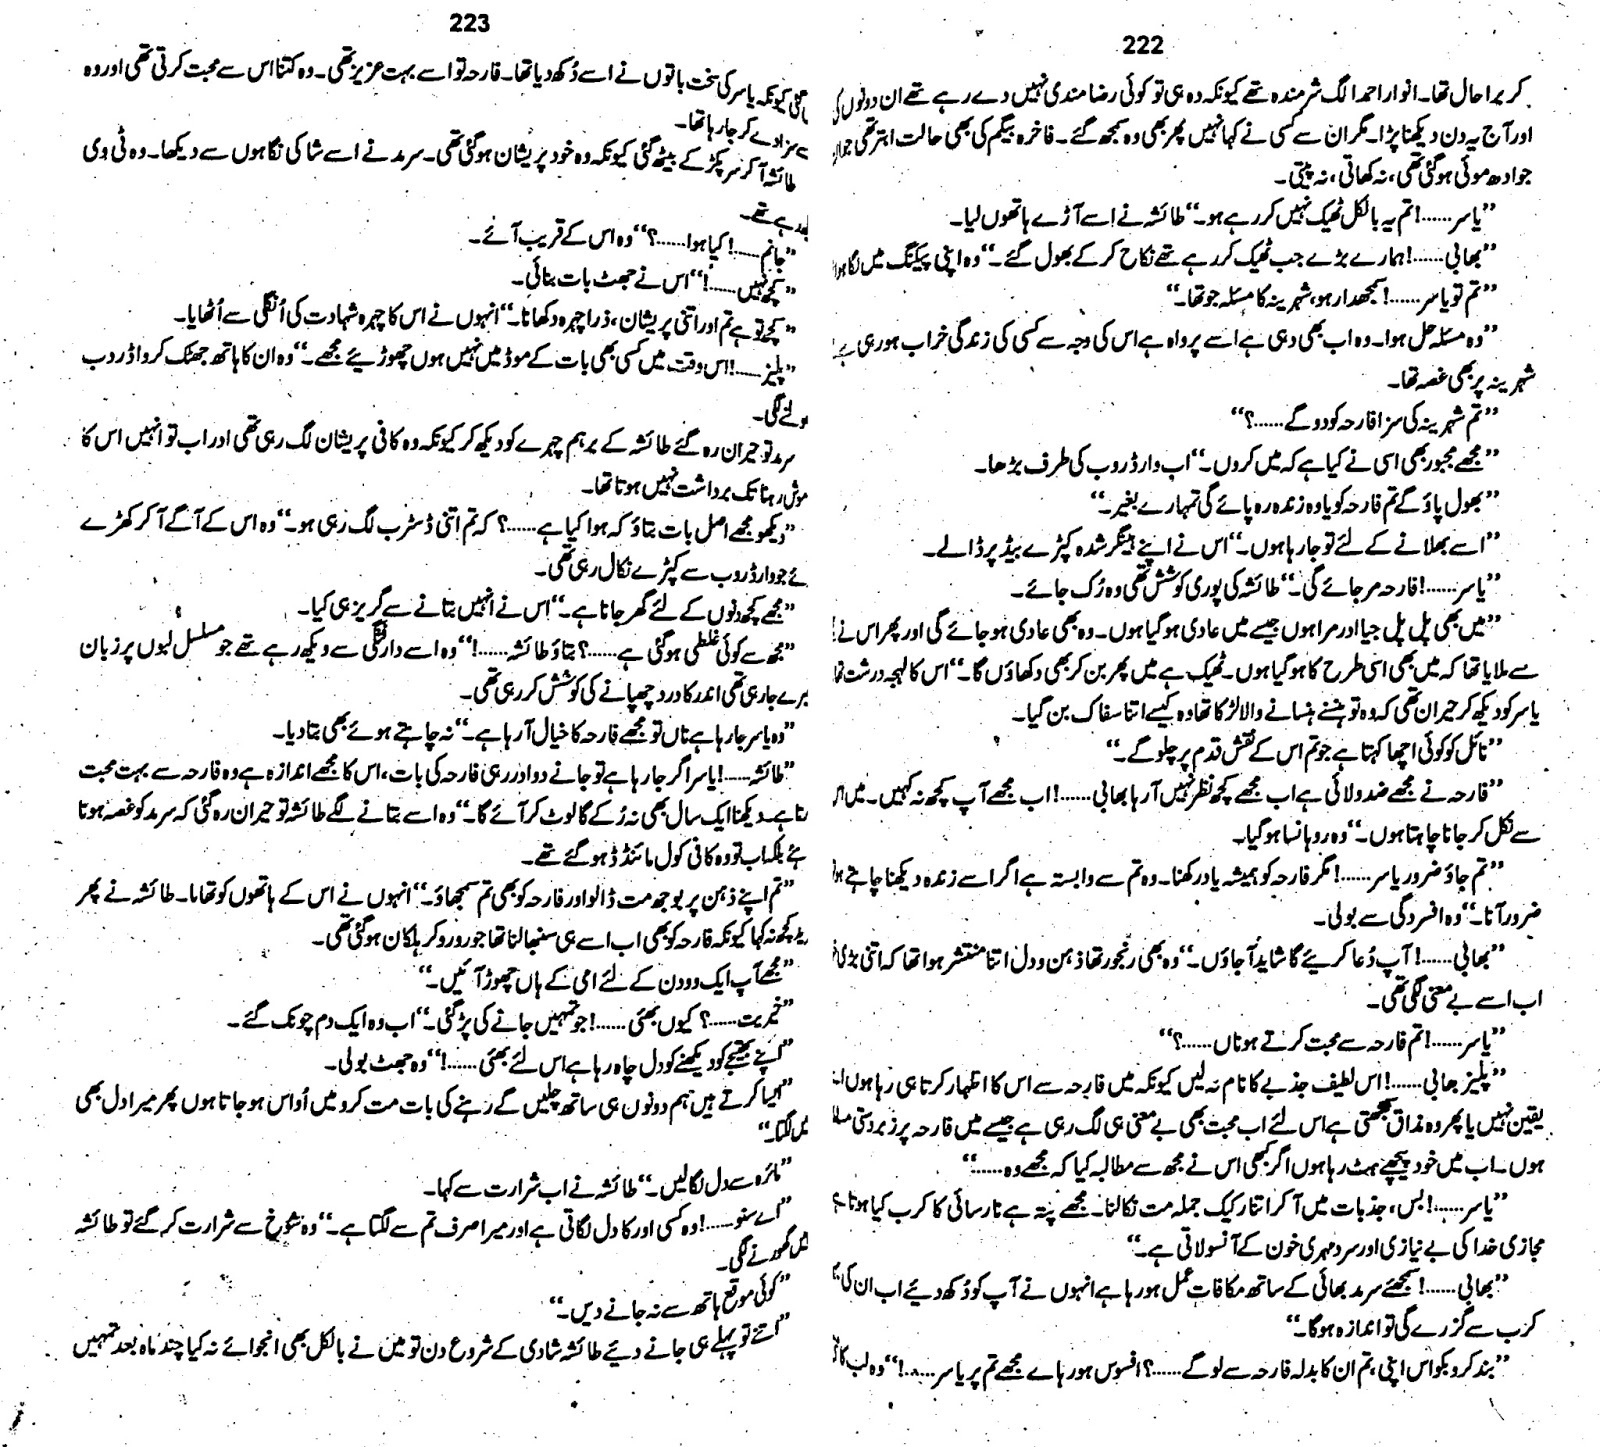 222
کر برا حال تھا۔ انوار احمد الگ شرمندہ تھے کیونکہ وہ ہی تو کوئی رضا مندی نہیں دے رہے تھے ان دونوں کی
اور آج یہ دن دیکھنا پڑا۔ مگر ان سے کسی نے کہا نہیں پھر بھی وہ سمجھ گئے۔ فاخرہ بیگم کی بھی حالت ابتر تھی
جو ادھ موئی ہو گئی تھی، نہ کھاتی، نہ پیتی۔
”یاسر......! تم یہ بالکل ٹھیک نہیں کر رہے ہو۔“ طائشہ نے اسے آڑے ہاتھوں لیا۔
”بھابی......! ہمارے بڑے جب ٹھیک کر رہے تھے نکاح کر کے بھول گئے۔“ وہ اپنی پیکنگ میں لگا ہوا
”تم تو یاسر......! سمجھدار ہو، شہرینہ کا مسئلہ جو تھا۔“
”وہ مسئلہ حل ہوا۔ وہ اب بھی وہی ہے اسے پرواہ ہے اس کی وجہ سے کسی کی زندگی خراب ہو رہی ہے
شہرینہ پر بھی غصہ تھا۔
”تم شہرینہ کی سزا فارحہ کو دو گے......؟“
”مجھے مجبور بھی اسی نے کیا ہے کہ میں کروں۔“ اب وارڈروب کی طرف بڑھا۔
”بھول پاؤ گے تم فارحہ کو یا وہ زندہ رہ پائے گی تمہارے بغیر۔“
”اسے بھلانے کے لئے تو جا رہا ہوں۔“ اس نے اپنے ہینگر شدہ کپڑے بیڈ پر ڈالے۔
”یاسر......! فارحہ مر جائے گی۔“ طائشہ کی پوری کوشش تھی وہ رُک جائے۔
”میں بھی پل پل جیا اور مرا ہوں جیسے میں عادی ہو گیا ہوں۔ وہ بھی عادی ہو جائے گی اور پھر اس نے
سے ملایا تھا کہ میں بھی اسی طرح کا ہو گیا ہوں۔ ٹھیک ہے میں پھر بن کر بھی دکھاؤں گا۔“ اس کا لہجہ درشت تھا
یاسر کو دیکھ کر حیران تھی کہ وہ تو ہنسنے ہنسانے والا لڑکا تھا وہ کیسے اتنا سفاک بن گیا۔
”نائل کو کوئی اچھا کہتا ہے جو تم اس کے نقش قدم پر چلو گے۔“
”فارحہ نے مجھے ضد دلائی ہے اب مجھے کچھ نظر نہیں آ رہا بھابی......! اب مجھے آپ کچھ نہ کہیں۔ میں
سے نکل کر جانا چاہتا ہوں۔“ وہ روہانسا ہو گیا۔
”تم جاؤ ضرور یاسر......! مگر فارحہ کو ہمیشہ یاد رکھنا۔ وہ تم سے وابستہ ہے اگر اسے زندہ دیکھنا چاہتے ہو
ضرور آنا۔“ وہ افسردگی سے بولی۔
”بھابی......! آپ دُعا کریئے گا شاید آ جاؤں۔“ وہ بھی رنجور تھا ذہن و دل اتنا منتشر ہوا تھا کہ اتنی بڑی
اب اسے بے معنی لگی تھی۔
”یاسر......! تم فارحہ سے محبت کرتے ہو ناں......؟“
”پلیز بھابی......! اس لطیف جذبے کا نام نہ لیں کیونکہ میں فارحہ سے اس کا اظہار کرتا ہی رہا ہوں
یقین نہیں یا پھر وہ مذاق سمجھتی ہے اس لئے اب محبت بھی بے معنی ہی لگ رہی ہے جیسے میں فارحہ پر زبردستی
ہوں۔ اب میں خود پیچھے ہٹ رہا ہوں اگر کبھی اس نے مجھ سے مطالبہ کیا کہ مجھے وہ......“
”یاسر......! بس، جذبات میں آ کر اتنا رکیک جملہ مت نکالنا۔ مجھے پتہ ہے نارسائی کا کرب کیا ہوتا ہے
مجازی خدا کی بے نیازی اور سرد مہری خون کے آنسو لاتی ہے۔“
”بھابی......! سمجھئے سرمد بھائی کے ساتھ مکافات عمل ہو رہا ہے انہوں نے آپ کو دُکھ دیئے اب ان کی
کرب سے گزرے گی تو اندازہ ہوگا۔“
”بند کرو بکواس اپنی، تم ان کا بدلہ فارحہ سے لو گے......؟ افسوس ہو رہا ہے مجھے تم پر یاسر......!“ وہ لب
223
گئی کیونکہ یاسر کی سخت باتوں نے اسے دُکھ دیا تھا۔ فارحہ تو اسے بہت عزیز تھی۔ وہ کتنا اس سے محبت کرتی تھی اور وہ
سے سزا دے کر جا رہا تھا۔
طائشہ آ کر سر پکڑ کے بیٹھ گئی کیونکہ وہ خود پریشان ہو گئی تھی۔ سرمد نے اسے شاکی نگاہوں سے دیکھا۔ وہ ٹی وی
رہے تھے۔
”جانم......! کیا ہوا......؟“ وہ اس کے قریب آئے۔
”کچھ نہیں......!“ اس نے جھٹ بات بنائی۔
”کچھ تو ہے تم اور اتنی پریشان، ذرا چہرہ دکھانا۔“ انہوں نے اس کا چہرہ شہادت کی اُنگلی سے اُٹھایا۔
”پلیز......! اس وقت میں کسی بھی بات کے موڈ میں نہیں ہوں چھوڑیئے مجھے۔“ وہ ان کا ہاتھ جھٹک کر وارڈروب
ولنے لگی۔
سرمد تو حیران رہ گئے طائشہ کے برہم چہرے کو دیکھ کر کیونکہ وہ کافی پریشان لگ رہی تھی اور اب تو انہیں اس کا
موش رہنا تک برداشت نہیں ہوتا تھا۔
”دیکھو مجھے اصل بات بتاؤ کہ ہوا کیا ہے......؟ کہ تم اتنی ڈسٹرب لگ رہی ہو۔“ وہ اس کے آگے آ کر کھڑے
ئے جو وارڈروب سے کپڑے نکال رہی تھی۔
”مجھے کچھ دنوں کے لئے گھر جانا ہے۔“ اس نے انہیں بتانے سے گریز ہی کیا۔
”مجھ سے کوئی غلطی ہو گئی ہے......؟ بتاؤ طائشہ......!“ وہ اسے وارفتگی سے دیکھ رہے تھے جو مسلسل لبوں پر زبان
برے جا رہی تھی اندر کا درد چھپانے کی کوشش کر رہی تھی۔
”وہ یاسر جا رہا ہے ناں تو مجھے فارحہ کا خیال آ رہا ہے۔“ نہ چاہتے ہوئے بھی بتا دیا۔
”طائشہ......! یاسر اگر جا رہا ہے تو جانے دو اور رہی فارحہ کی بات، اس کا مجھے اندازہ ہے وہ فارحہ سے بہت محبت
رتا ہے۔ دیکھنا ایک سال بھی نہ رُکے گا لوٹ کر آئے گا۔“ وہ اسے بتانے لگے طائشہ تو حیران رہ گئی کہ سرمد کو غصہ ہوتا
ہے بلکہ اب تو وہ کافی کول مائنڈڈ ہو گئے تھے۔
”تم اپنے ذہن پر بوجھ مت ڈالو اور فارحہ کو بھی تم سمجھاؤ۔“ انہوں نے اس کے ہاتھوں کو تھاما۔ طائشہ نے پھر
ید کچھ نہ کہا کیونکہ فارحہ کو بھی اب اسے ہی سنبھالنا تھا جو رو رو کر ہلکان ہو گئی تھی۔
”مجھے آپ ایک دو دن کے لئے امی کے ہاں چھوڑ آئیں۔“
”خیریت......؟ کیوں بھئی......! جو تمہیں جانے کی پڑ گئی۔“ اب وہ ایک دم چونک گئے۔
”اپنے بھتیجے کو دیکھنے کو دل چاہ رہا ہے اس لئے بھئی......!“ وہ جھٹ بولی۔
”ایسا کرتے ہیں ہم دونوں ہی ساتھ چلیں گے رہنے کی بات مت کرو میں اُداس ہو جاتا ہوں پھر میرا دل بھی
یں لگتا۔“
”مائرہ سے دل لگا لیں۔“ طائشہ نے اب شرارت سے کہا۔
”اے سنو......! وہ کسی اور کا دل لگاتی ہے اور میرا صرف تم سے لگتا ہے۔“ وہ شوخ سے شرارت کر گئے تو طائشہ
یں گھورنے لگی۔
”کوئی موقع ہاتھ سے نہ جانے دیں۔“
”اتنے تو پہلے ہی جانے دیئے طائشہ شادی کے شروع دن تو میں نے بالکل بھی انجوائے نہ کیا چند ماہ بعد تمہیں